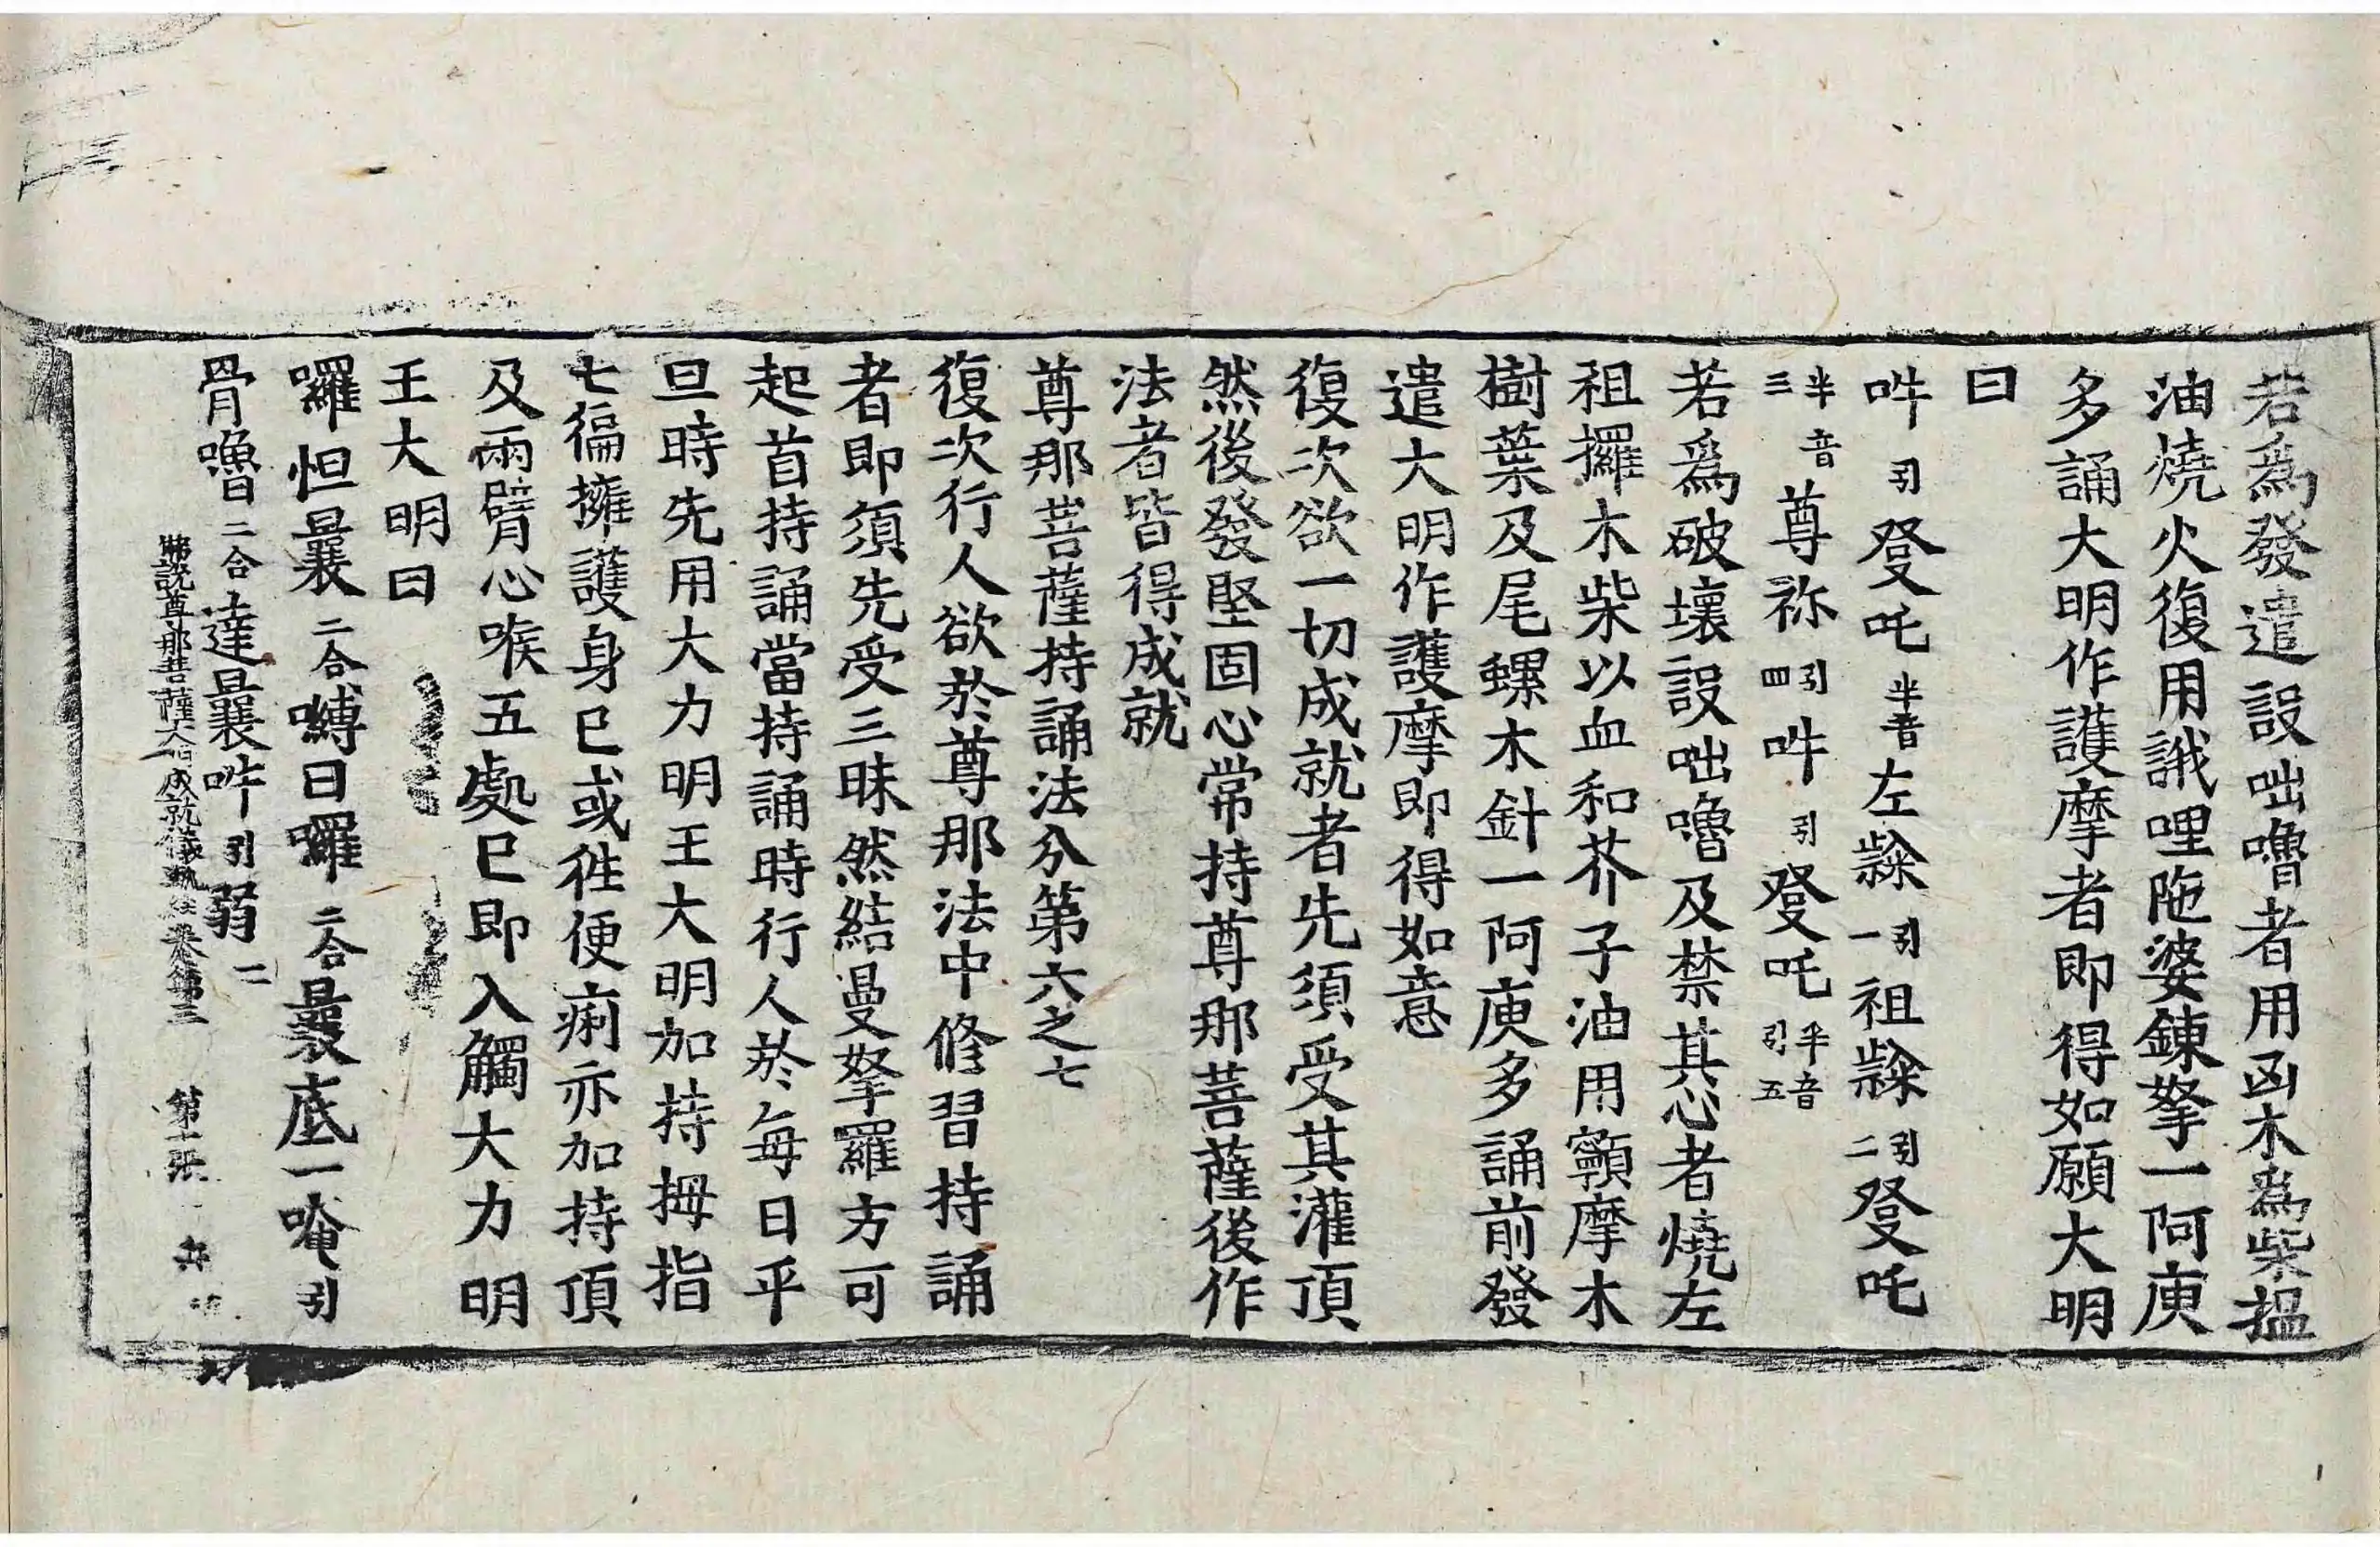 若爲發遣設咄嚕者用凶木爲柴搵
油燒火復用誐哩陁婆錬拏一阿庾
多誦大明作護摩者即得如願大明
曰
吽引發吒半音左㗚引一祖㗚引二發吒
半音三尊祢引四吽引發吒半音引五
若爲破壞設咄嚕及禁其心者燒左
祖攞木柴以血和芥子油用籟摩木
樹葉及尾螺木針一阿庾多誦前發
遣大明作護摩即得如意
復次欲一切成就者先須受其灌頂
然後發堅固心常持尊那菩薩後作
法者皆得成就
尊那菩薩持誦法分第六之七
復次行人欲於尊那法中修習持誦
者即須先受三昧然結曼拏羅方可
起首持誦當持誦時行人於每日平
旦時先用大力明王大明加持拇指
七徧擁護身已或徃便痢亦加持頂
及兩臂心喉五處已即入觸大力明
王大明曰
囉怛曩二合嚩日囉二合曩底一唵引
骨嚕二合達曩吽引弱二
佛說尊那菩薩大明成就儀軌經卷第三 第十張